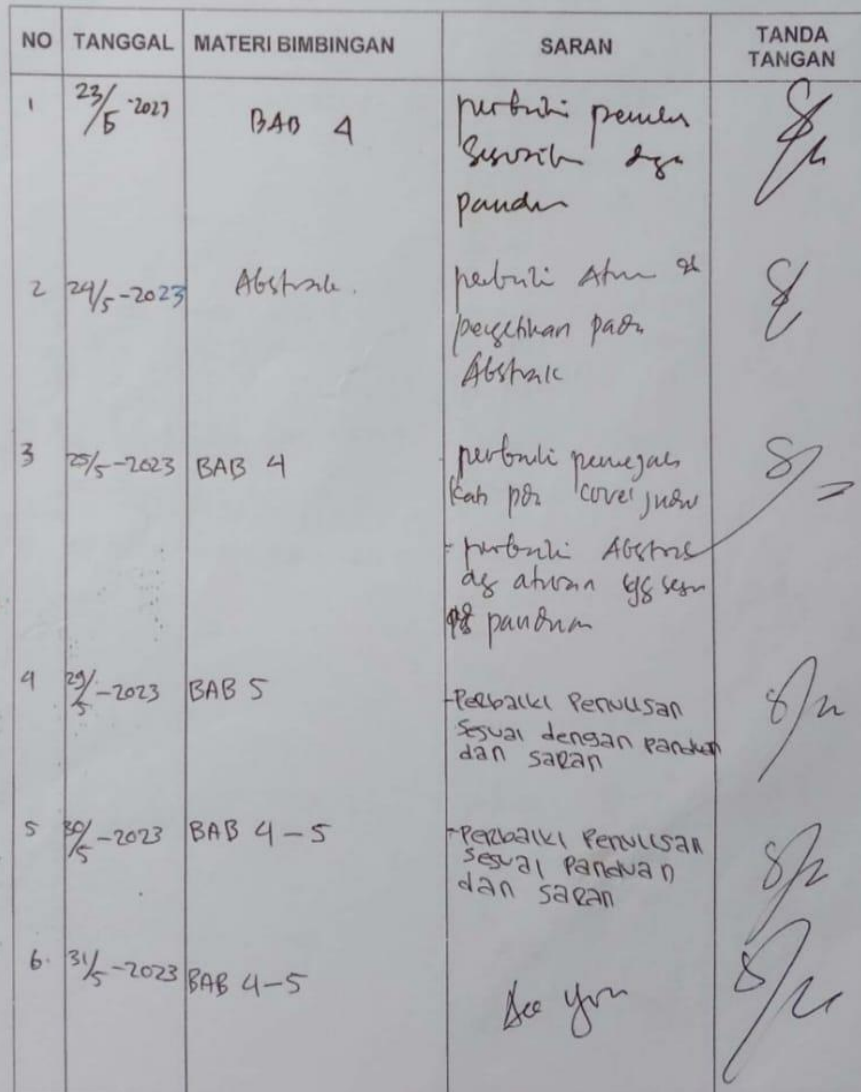 NO TANGGAL MATERI BIMBINGAN SARAN TANDA TANGAN
1 23/5-2023 BAB 4 perbaiki
panduan
2 24/5-2023 Abstrak. perbaiki
pengetikan pada
Abstrak
3 25/5-2023 BAB 4 perbaiki
cover
- perbaiki Abstrak
dg aturan yg
panduan
4 29/5-2023 BAB 5 -Perbaiki Penulisan
Sesuai dengan Panduan
dan saran
5 30/5-2023 BAB 4-5 -Perbaiki Penulisan
sesuai Panduan
dan saran
6. 31/5-2023 BAB 4-5 Acc